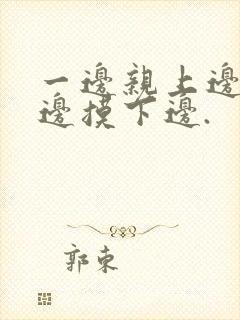 一邊親上邊
邊摸下邊.
郭東